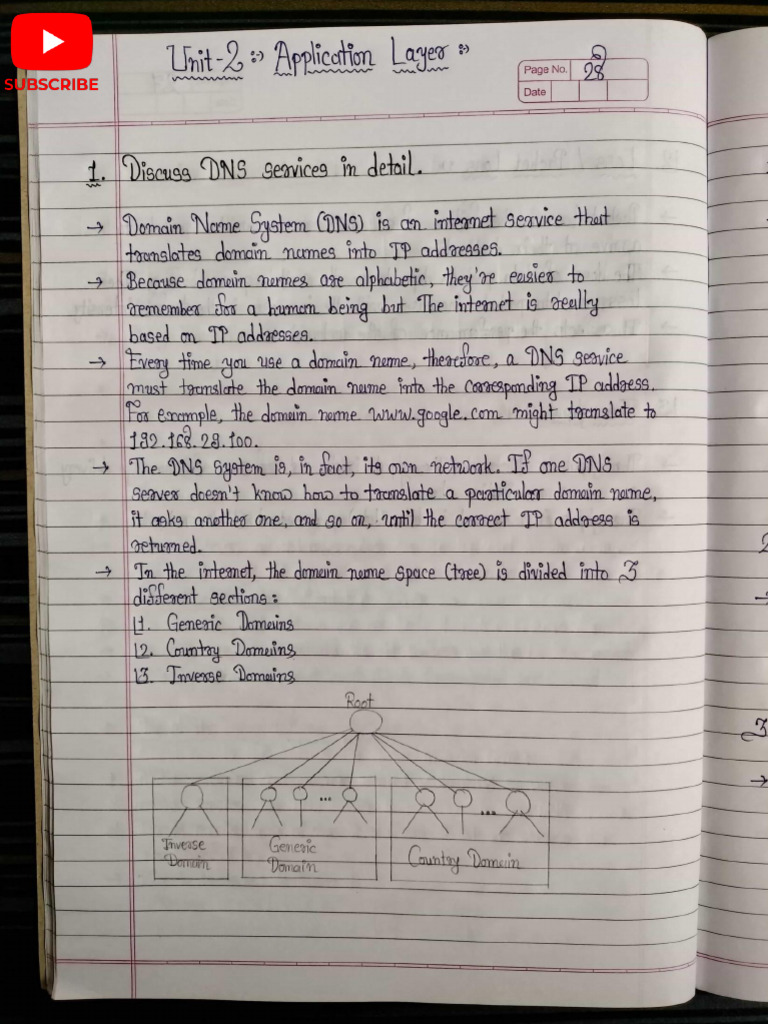 SUBSCRIBE
Unit-2 :→ Application Layer :→
Page No. 28
Date
1. Discuss DNS services in detail.
→ Domain Name System (DNS) is an internet service that
translates domain names into IP addresses.
→ Because domain names are alphabetic, they're easier to
remember for a human being but The internet is really
based on IP addresses.
→ Every time you use a domain name, therefore, a DNS service
must translate the domain name into the corresponding IP address.
For example, the domain name www.google.com might translate to
192.168.29.100.
→ The DNS system is, in fact, its own network. If one DNS
server doesn't know how to translate a particular domain name,
it asks another one, and so on, until the correct IP address is
returned.
→ In the internet, the domain name space (tree) is divided into 3
different sections:
1. Generic Domains
2. Country Domains
3. Inverse Domains
Root
... ...
Inverse Domain
Generic Domain
Country Domain